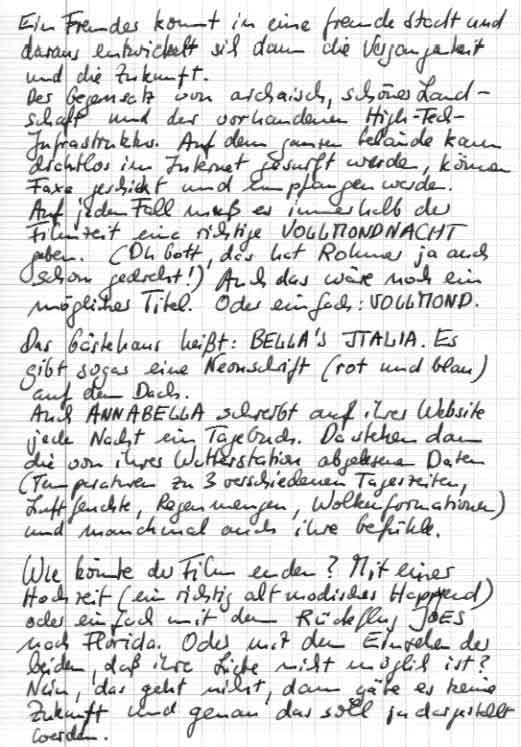 Ein Fremdes kommt in eine fremde Stadt und
daraus entwickelt sich dann die Vergangenheit
und die Zukunft.
Der Gegensatz von archaisch, schönes Land-
schaft und der vorhandenen High-Tech-
Infrastruktur. Auf dem ganzen Gelände kann
drahtlos im Internet gesurft werden, können
Faxe geschickt und empfangen werden.
Auf jeden Fall muß es innerhalb der
Filmzeit eine richtige VOLLMONDNACHT
geben. (Oh Gott, das hat Rohmer ja auch
schon gedreht!) Auch das wäre noch ein
möglicher Titel. Oder einfach: VOLLMOND.
Das Gästehaus heißt: BELLA'S ITALIA. Es
gibt sogar eine Neonschrift (rot und blau)
auf dem Dach.
Auch ANNABELLA schreibt auf ihrer Website
jede Nacht ein Tagebuch. Da stehen dann
die von ihrer Wetterstation abgelesene Daten
(Temperaturen zu 3 verschiedenen Tageszeiten,
Luftfeuchte, Regenmengen, Wolkenformationen)
und manchmal auch ihre Gefühle.
Wie könnte der Film enden? Mit einer
Hochzeit (ein richtig altmodisches Happyend)
oder einfach mit dem Rückflug JOES
nach Florida. Oder mit dem Einsehen der
beiden, daß ihre Liebe nicht möglich ist?
Nein, das geht nicht, dann gäbe es keine
Zukunft und genau das soll ja dargestellt
werden.